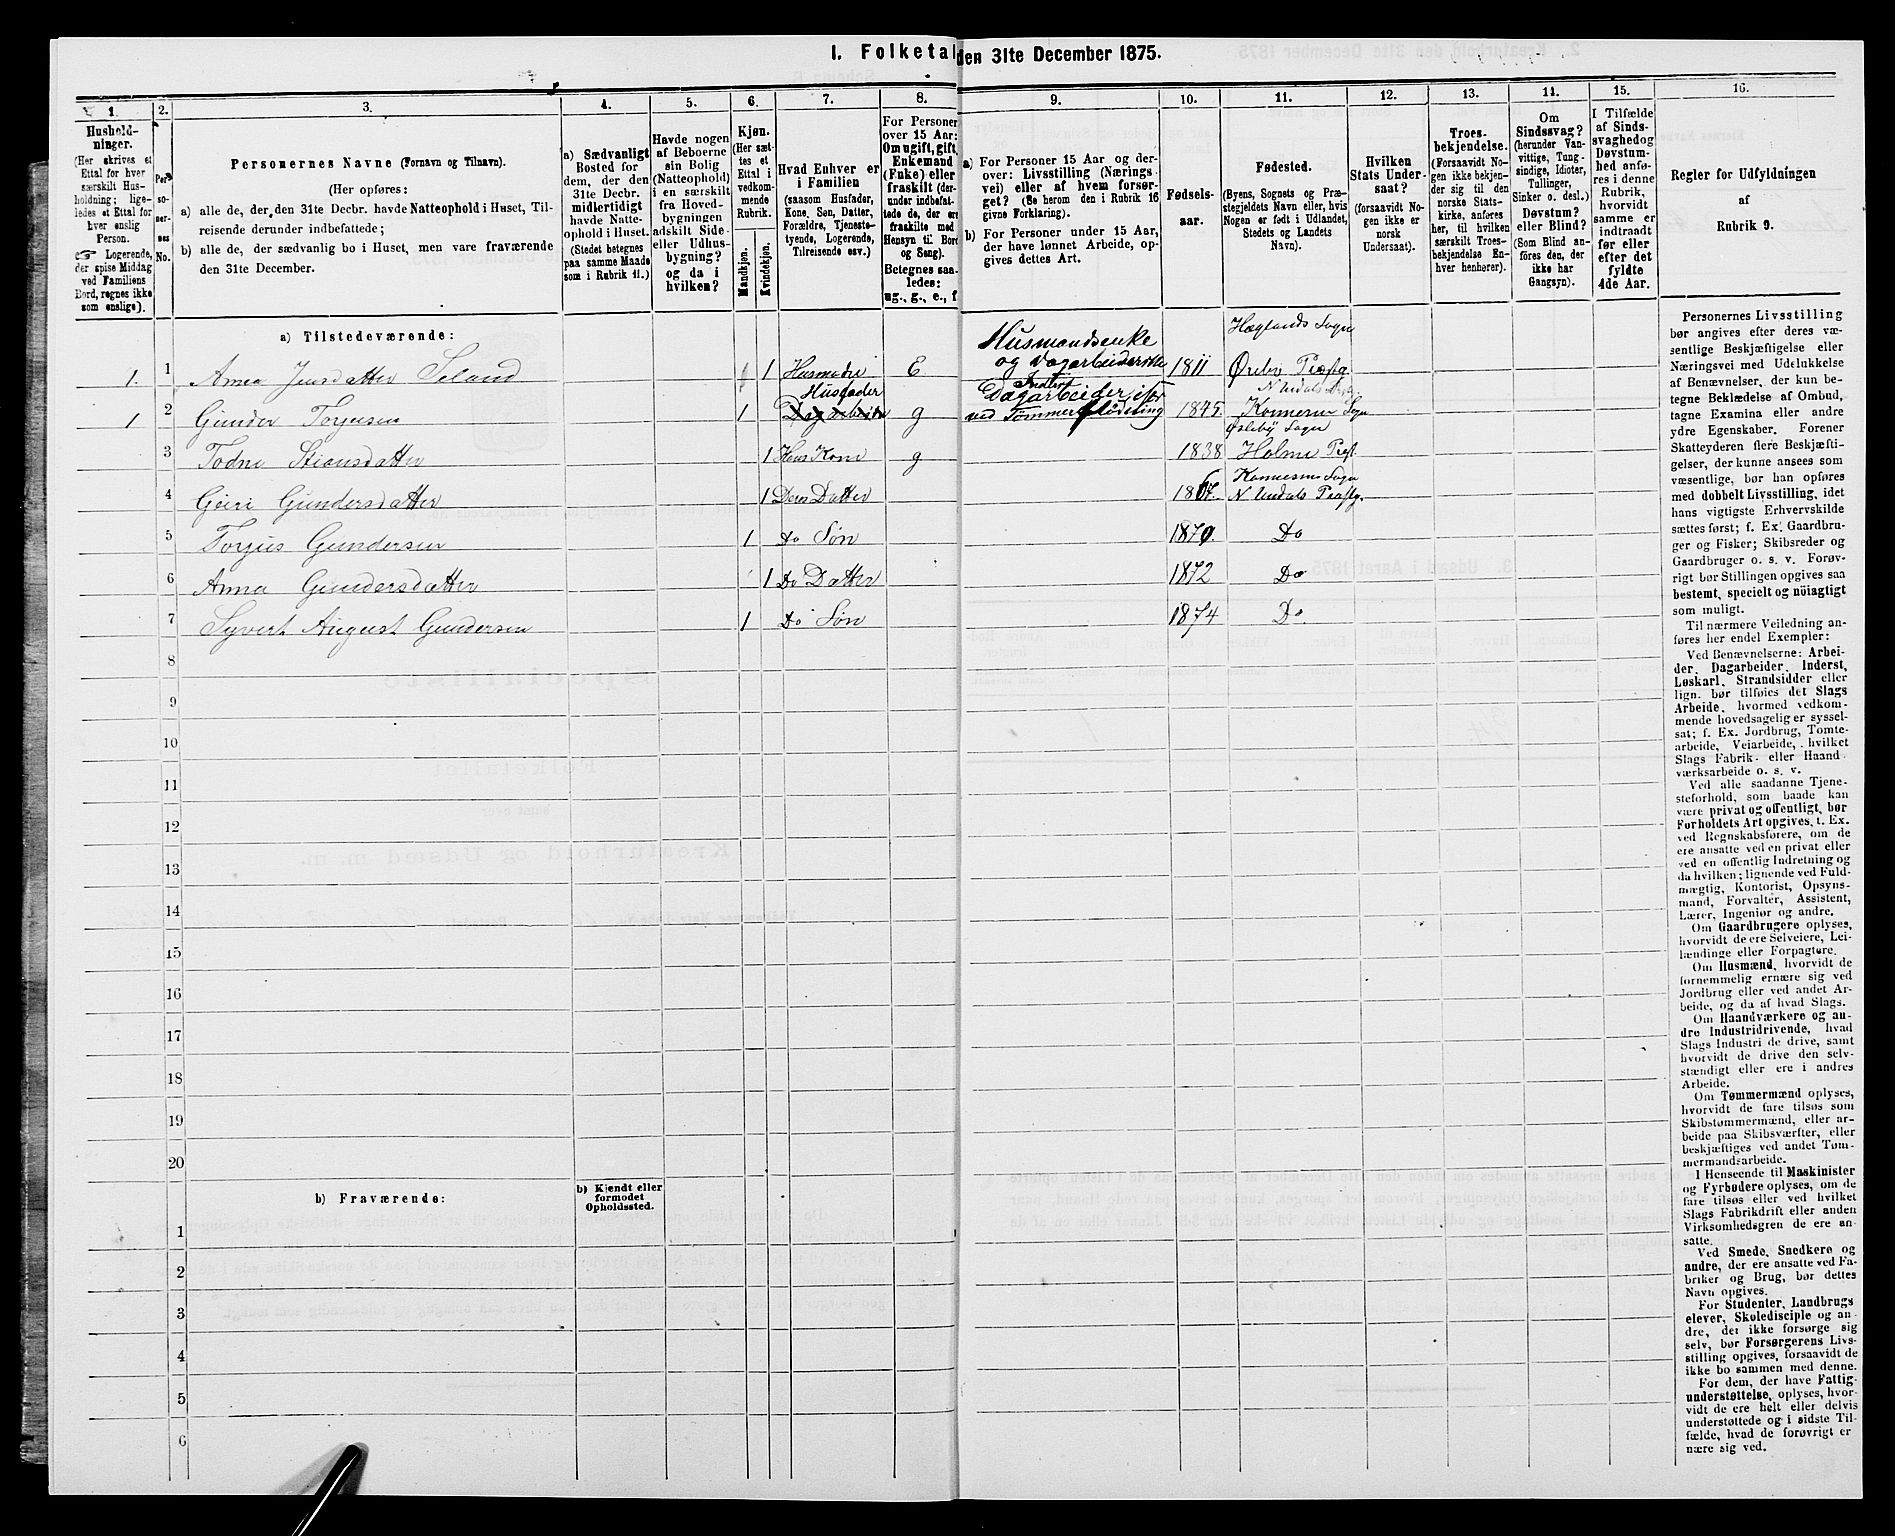 I. Folketal den 31te December 1875.
1. 2. 3. 4. 5. 6. 7. 8. 9. 10. 11. 12. 13. 14. 15. 16.
Hushold-
ninger.
(Her skrives et
Ettal for hver
særskilt Hus-
holdning; lige-
ledes et Ettal for
hver enslig
Person.
☞ Logerende,
der spise Middag
ved Familiens
Bord, regnes ikke
som enslige).
Per-
so-
ner-
nes
No.
Personernes Navne (Fornavn og Tilnavn).
(Her opføres:
a) alle de, der den 31te Decbr. havde Natteophold i Huset, Til-
reisende derunder indbefattede;
b) alle de, der sædvanlig bo i Huset, men vare fraværende
den 31te December.
a) Sædvanligt
Bosted for
dem, der den
31te Decbr.
midlertidigt
havde Natte-
ophold i Huset.
(Stedet betegnes
paa samme Maade
som i Rubrik 11.)
Havde nogen
af Beboerne
sin Bolig
(Natteophold)
i en særskilt
fra Hoved-
bygningen
adskilt Side-
eller Udhus-
bygning?
og da i
hvilken?
Kjøn.
(Her sæt-
tes et
Ettal i
vedkom-
mende
Rubrik.
Mandkjøn.
Kvindekjøn.
Hvad Enhver er
i Familien
(saasom Husfader,
Kone, Søn, Datter,
Forældre, Tjeneste-
tyende, Logerende,
Tilreisende osv.)
For Personer
over 15 Aar:
Om ugift, gift,
Enkemand
(Enke) eller
fraskilt (der-
under indbefat-
tede de, der ere
fraskilte med
Hensyn til Bord
og Seng).
Betegnes saa-
ledes:
ug., g., e., f
a) For Personer 15 Aar og der-
over: Livsstilling (Nærings-
vei) eller af hvem forsør-
get? (Se herom den i Rubrik 16
givne Forklaring).
b) For Personer under 15 Aar,
der have lønnet Arbeide, op-
gives dettes Art.
Fødsels-
aar.
Fødested.
(Byens, Sognets og Præ-
stegjeldets Navn eller, hvis
Nogen er født i Udlandet,
Stedets og Landets
Navn).
Hvilken
Stats Under-
saat?
(forsaavidt No-
gen ikke er
norsk
Undersaat).
Troes-
bekjendelse.
(Forsaavidt No-
gen ikke bekjen-
der sig til den
norske Stats-
kirke, anføres
her, til hvilken
særskilt Troes-
bekjendelse En-
hver henhører).
Om
Sindssvag?
(herunder Van-
vittige, Tung-
sindige, Idioter,
Tullinger,
Sinker o. desl.)
Døvstum?
eller Blind?
(Som Blind an-
føres den, der
ikke har
Gangsyn).
I Tilfælde
af Sinds-
svaghed og
Døvstum-
hed anfø-
res i denne
Rubrik,
hvorvidt
samme er
indtraadt
før eller
efter det
fyldte
4de Aar.
Regler for Udfyldningen
af
Rubrik 9.
a) Tilstedeværende:
1. 1 Anna Jensdatter Seland 1 Husmoder E Husmandsenke og Dagarbeiderske 1811 Hæglands Sogn Øvebø Præstg
1 2 Gunder Torjusen 1 Husfader Dagarbeider g Inderst Dagarbeider ved Tømmerflødning 1845. Konnesm Sogn N. Undals
3 Todne Stiansdatter 1 Hans Kone g 1838 Øslebø Sogn Holme Præst
4 Geiri Gundersdatter 1 Deres Datter 1867. Konnesm Sogn N. Undals Præstg.
5 Torjus Gundersen 1 Do Søn 1870. Do
6 Anna Gundersdatter 1 Do Datter 1872 Do
7 Syvert August Gundersen 1 Do Søn 1874 Do.
8
9
10
11
12
13
14
15
16
17
18
19
20
b) Fraværende:
b) Kjendt eller
formodet
Opholdssted.
1
2
3
4
5
6
Personernes Livsstilling
bør angives efter deres væ-
sentlige Beskjæftigelse eller
Næringsvei med Udelukkelse
af Benævnelser, der kun be-
tegne Beklædelse af Ombud,
tagne Examina eller andre
ydre Egenskaber. Forener
Skatteyderen flere Beskjæfti-
gelser, der kunne ansees som
væsentlige, bør han opføres
med dobbelt Livsstilling, idet
hans vigtigste Erhvervskilde
sættes først; f. Ex. Gaardbru-
ger og Fisker; Skibsreder og
Gaardbruger o. s. v. Forøv-
rigt bør Stillingen opgives saa
bestemt, specielt og nøiagtigt
som muligt.
Til nærmere Veiledning an-
føres her endel Exempler:
Ved Benævnelserne: Arbei-
der, Dagarbeider, Inderst,
Løskarl, Strandsidder eller
lign. bør tilføies det Slags
Arbeide, hvormed vedkom-
mende hovedsagelig er syssel-
sat; f. Ex. Jordbrug, Tomte-
arbeide, Veiarbeide, hvilket
Slags Fabrik- eller Haand-
værksarbeide o. s. v.
Ved alle saadanne Tjene-
steforhold, som baade kan
være privat og offentligt, bør
Forholdets Art opgives, t. Ex.
ved Regnskabsførere, om de
ere ansatte ved en privat eller
ved en offentlig Indretning og
da hvilken; lignende ved Fuld-
mægtig, Kontorist, Opsyns-
mand, Forvalter, Assistent,
Lærer, Ingeniør og andre.
Om Gaardbrugere oplyses,
hvorvidt de ere Selveiere, Lei-
lændinge eller Forpagtere.
Om Husmænd, hvorvidt de
fornemmelig ernære sig ved
Jordbrug eller ved andet Ar-
beide, og da af hvad Slags.
Om Haandværkere og an-
dre Industridrivende, hvad
Slags Industri de drive, samt
hvorvidt de drive den selv-
stændigt eller ere i andres
Arbeide.
Om Tømmermænd oplyses,
hvorvidt de fare tilsøs som
Skibstømmermænd, eller ar-
beide paa Skibsværfter, eller
beskjæftiges ved andet Tøm-
mermandsarbeide.
I Henseende til Maskinister
og Fyrbødere oplyses, om de
fare tilsøs eller ved hvilket
Slags Fabrikdrift eller anden
Virksomhedsgren de ere an-
satte.
Ved Smede, Snedkere og
andre, der ere ansatte ved Fa-
briker og Brug, bør dettes
Navn opgives.
For Studenter, Landbrugs
elever, Skoledisciple og an-
dre, der ikke forsørge sig
selv, bør Forsørgerens Livs-
stilling opgives, forsaavidt de
ikke bo sammen med denne.
For dem, der have Fattig-
understøttelse, oplyses, hvor-
vidt de ere helt eller delvis
understøttede og i sidste Til-
fælde, hvad de forøvrigt er
nære sig ved.